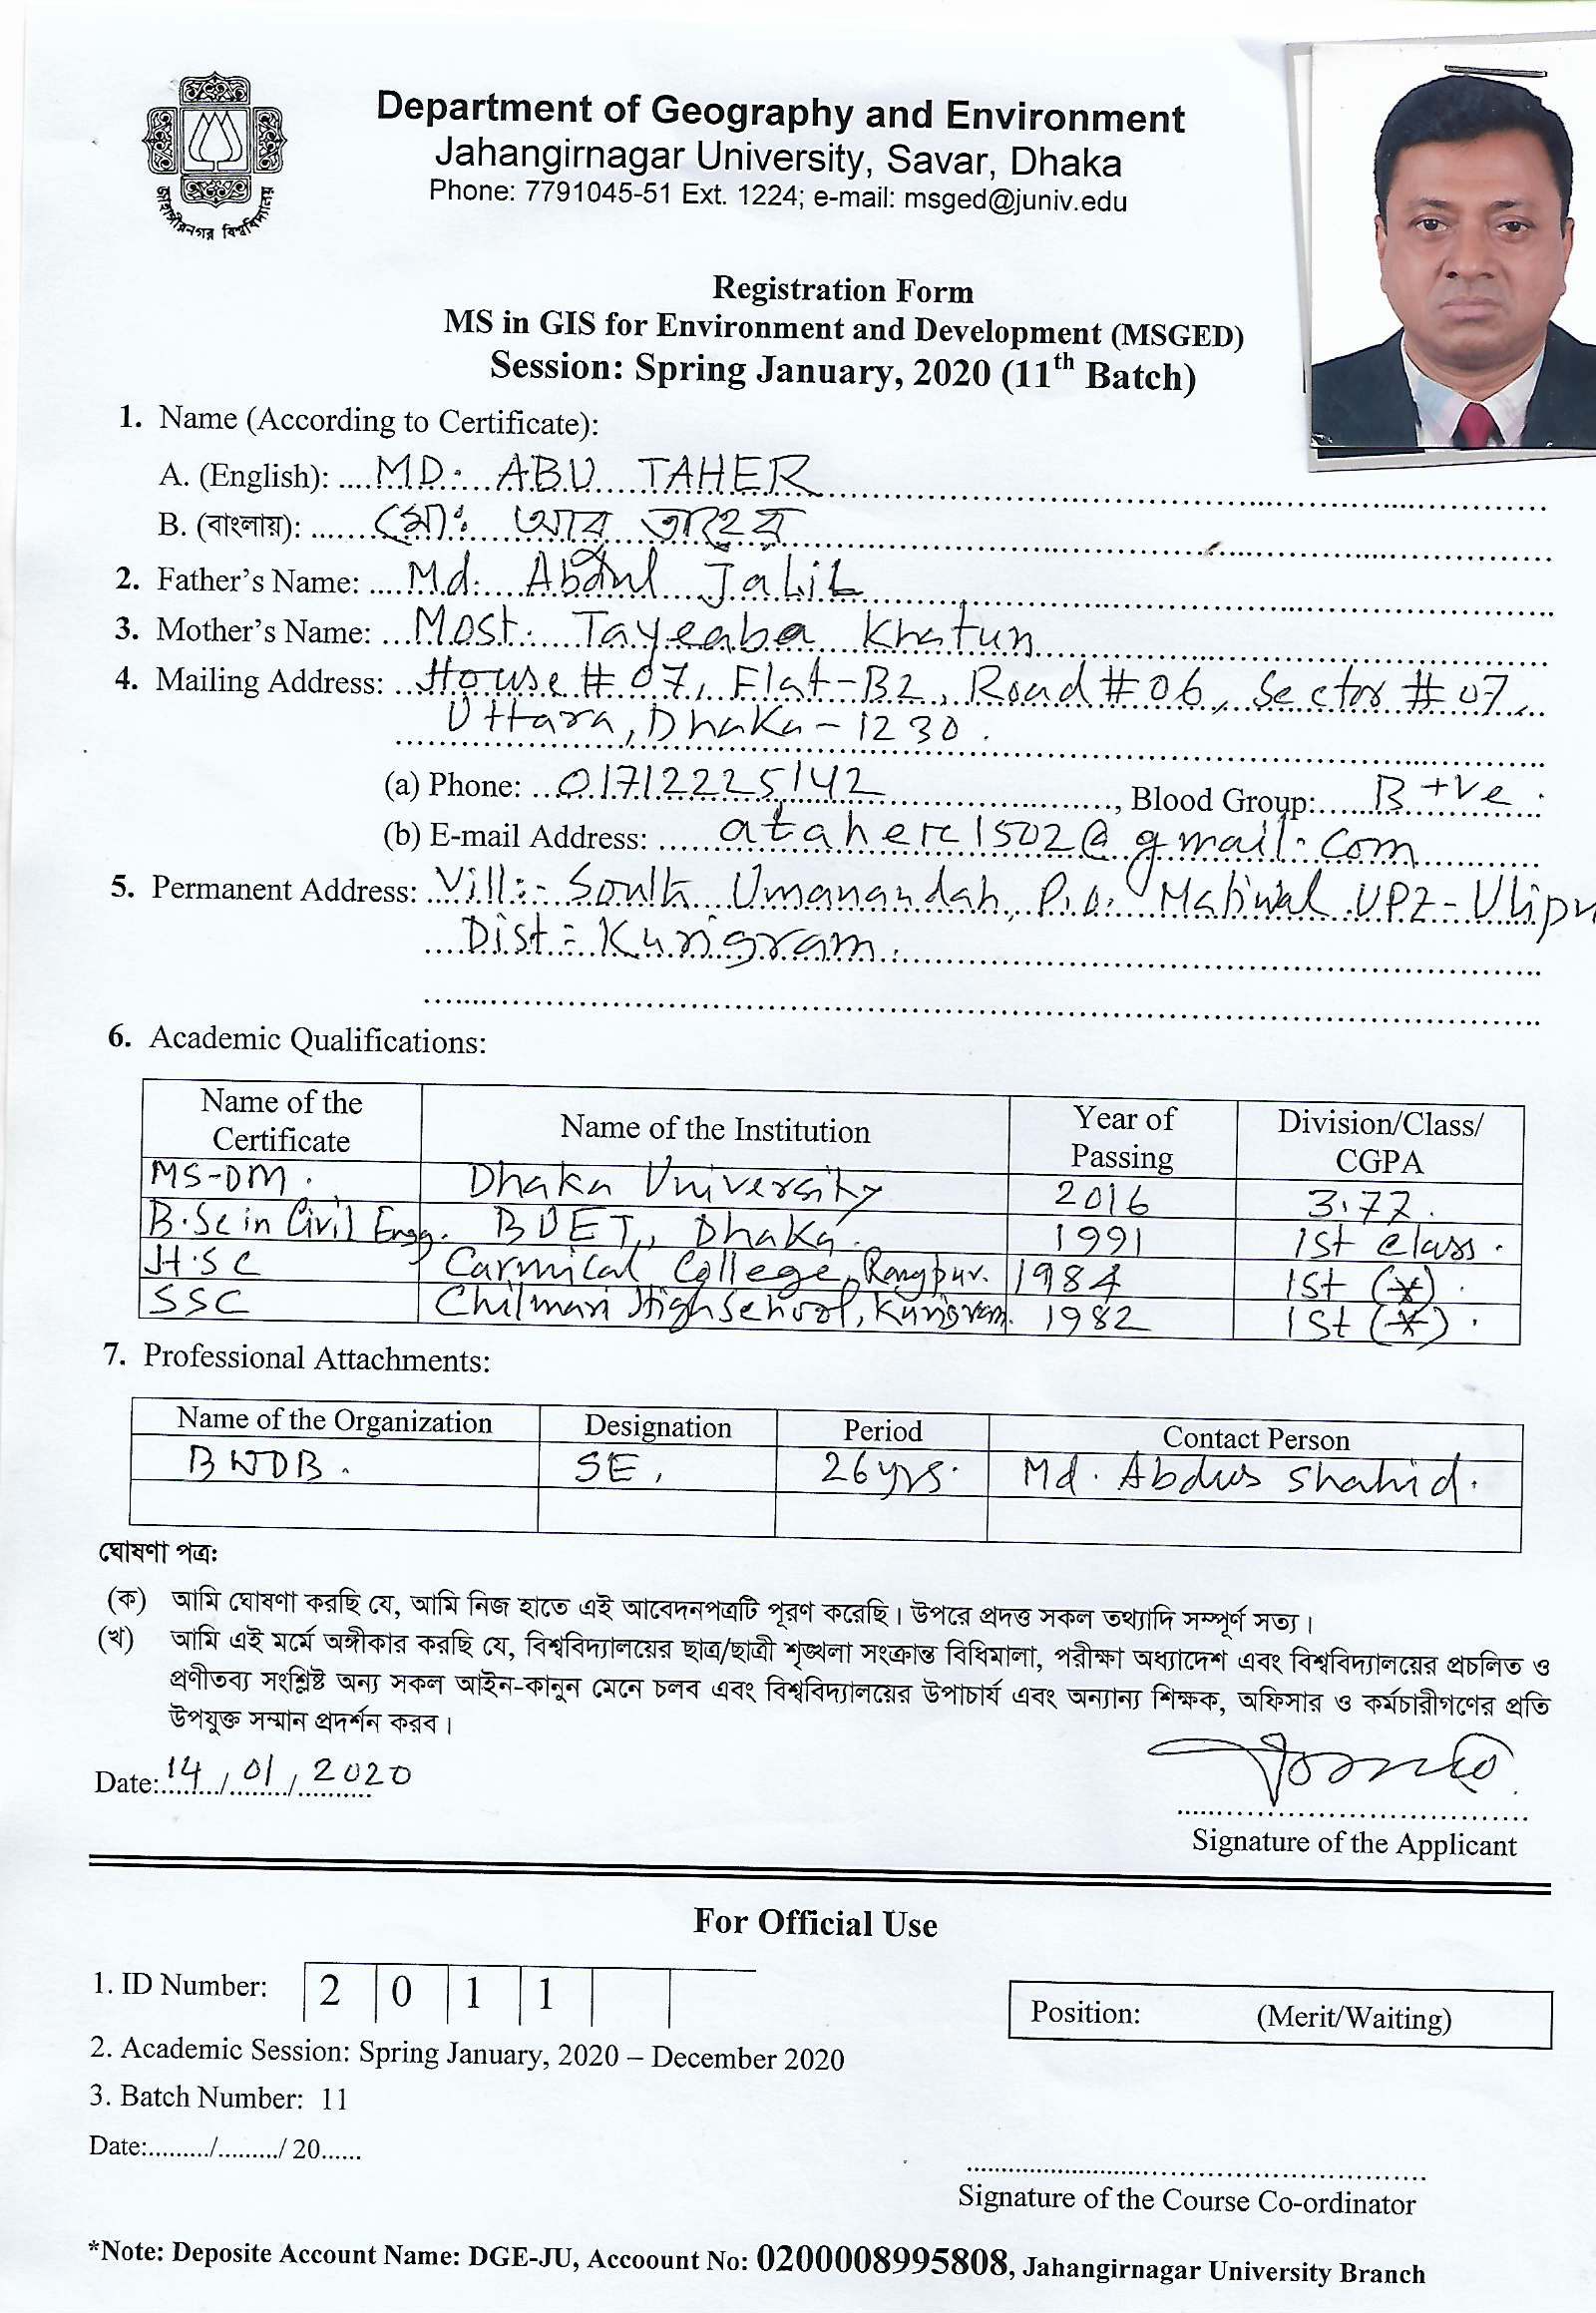 জাহাঙ্গীরনগর বিশ্ববিদ্যালয়
Department of Geography and Environment
Jahangirnagar University, Savar, Dhaka
Phone: 7791045-51 Ext. 1224; e-mail: msged@juniv.edu
Registration Form
MS in GIS for Environment and Development (MSGED)
Session: Spring January, 2020 (11th Batch)
1. Name (According to Certificate):
A. (English): MD. ABU TAHER
B. (বাংলায়): মোঃ আবু তাহের
2. Father's Name: Md. Abdul Jalil
3. Mother's Name: Most. Tayeaba Khatun
4. Mailing Address: House # 07, Flat-B2, Road # 06, Sector # 07,
Uttara, Dhaka - 1230.
(a) Phone: 01712225142, Blood Group: B +ve.
(b) E-mail Address: ataher1502@gmail.com
5. Permanent Address: Vill:- South Umanandah, P.o. UPZ-Ulipu
Dist:- Kurigram.
6. Academic Qualifications:
Name of the Certificate Name of the Institution Year of Passing Division/Class/ CGPA
MS-DM. Dhaka University 2016 3.77.
B.Sc in Civil Engg. BUET, Dhaka. 1991 1st class.
H.S.C Carmical College, Rangpur. 1984 1st (*).
SSC Chilmari High School, Kurigram. 1982 1st (*).
7. Professional Attachments:
Name of the Organization Designation Period Contact Person
BWDB. SE, 26 yrs. Md. Abdus Shahid.
ঘোষণা পত্র:
(ক) আমি ঘোষণা করছি যে, আমি নিজ হাতে এই আবেদনপত্রটি পূরণ করেছি। উপরে প্রদত্ত সকল তথ্যাদি সম্পূর্ণ সত্য।
(খ) আমি এই মর্মে অঙ্গীকার করছি যে, বিশ্ববিদ্যালয়ের ছাত্র/ছাত্রী শৃঙ্খলা সংক্রান্ত বিধিমালা, পরীক্ষা অধ্যাদেশ এবং বিশ্ববিদ্যালয়ের প্রচলিত ও
প্রণীতব্য সংশ্লিষ্ট অন্য সকল আইন-কানুন মেনে চলব এবং বিশ্ববিদ্যালয়ের উপাচার্য এবং অন্যান্য শিক্ষক, অফিসার ও কর্মচারীগণের প্রতি
উপযুক্ত সম্মান প্রদর্শন করব।
Date: 14/01/2020
Signature of the Applicant
For Official Use
1. ID Number: 2 0 1 1
Position: (Merit/Waiting)
2. Academic Session: Spring January, 2020 – December 2020
3. Batch Number: 11
Date:........./........./ 20......
Signature of the Course Co-ordinator
*Note: Deposite Account Name: DGE-JU, Accoount No: 0200008995808, Jahangirnagar University Branch